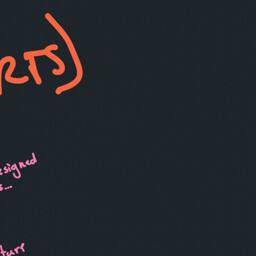 RTS)
esigned
s...
ture